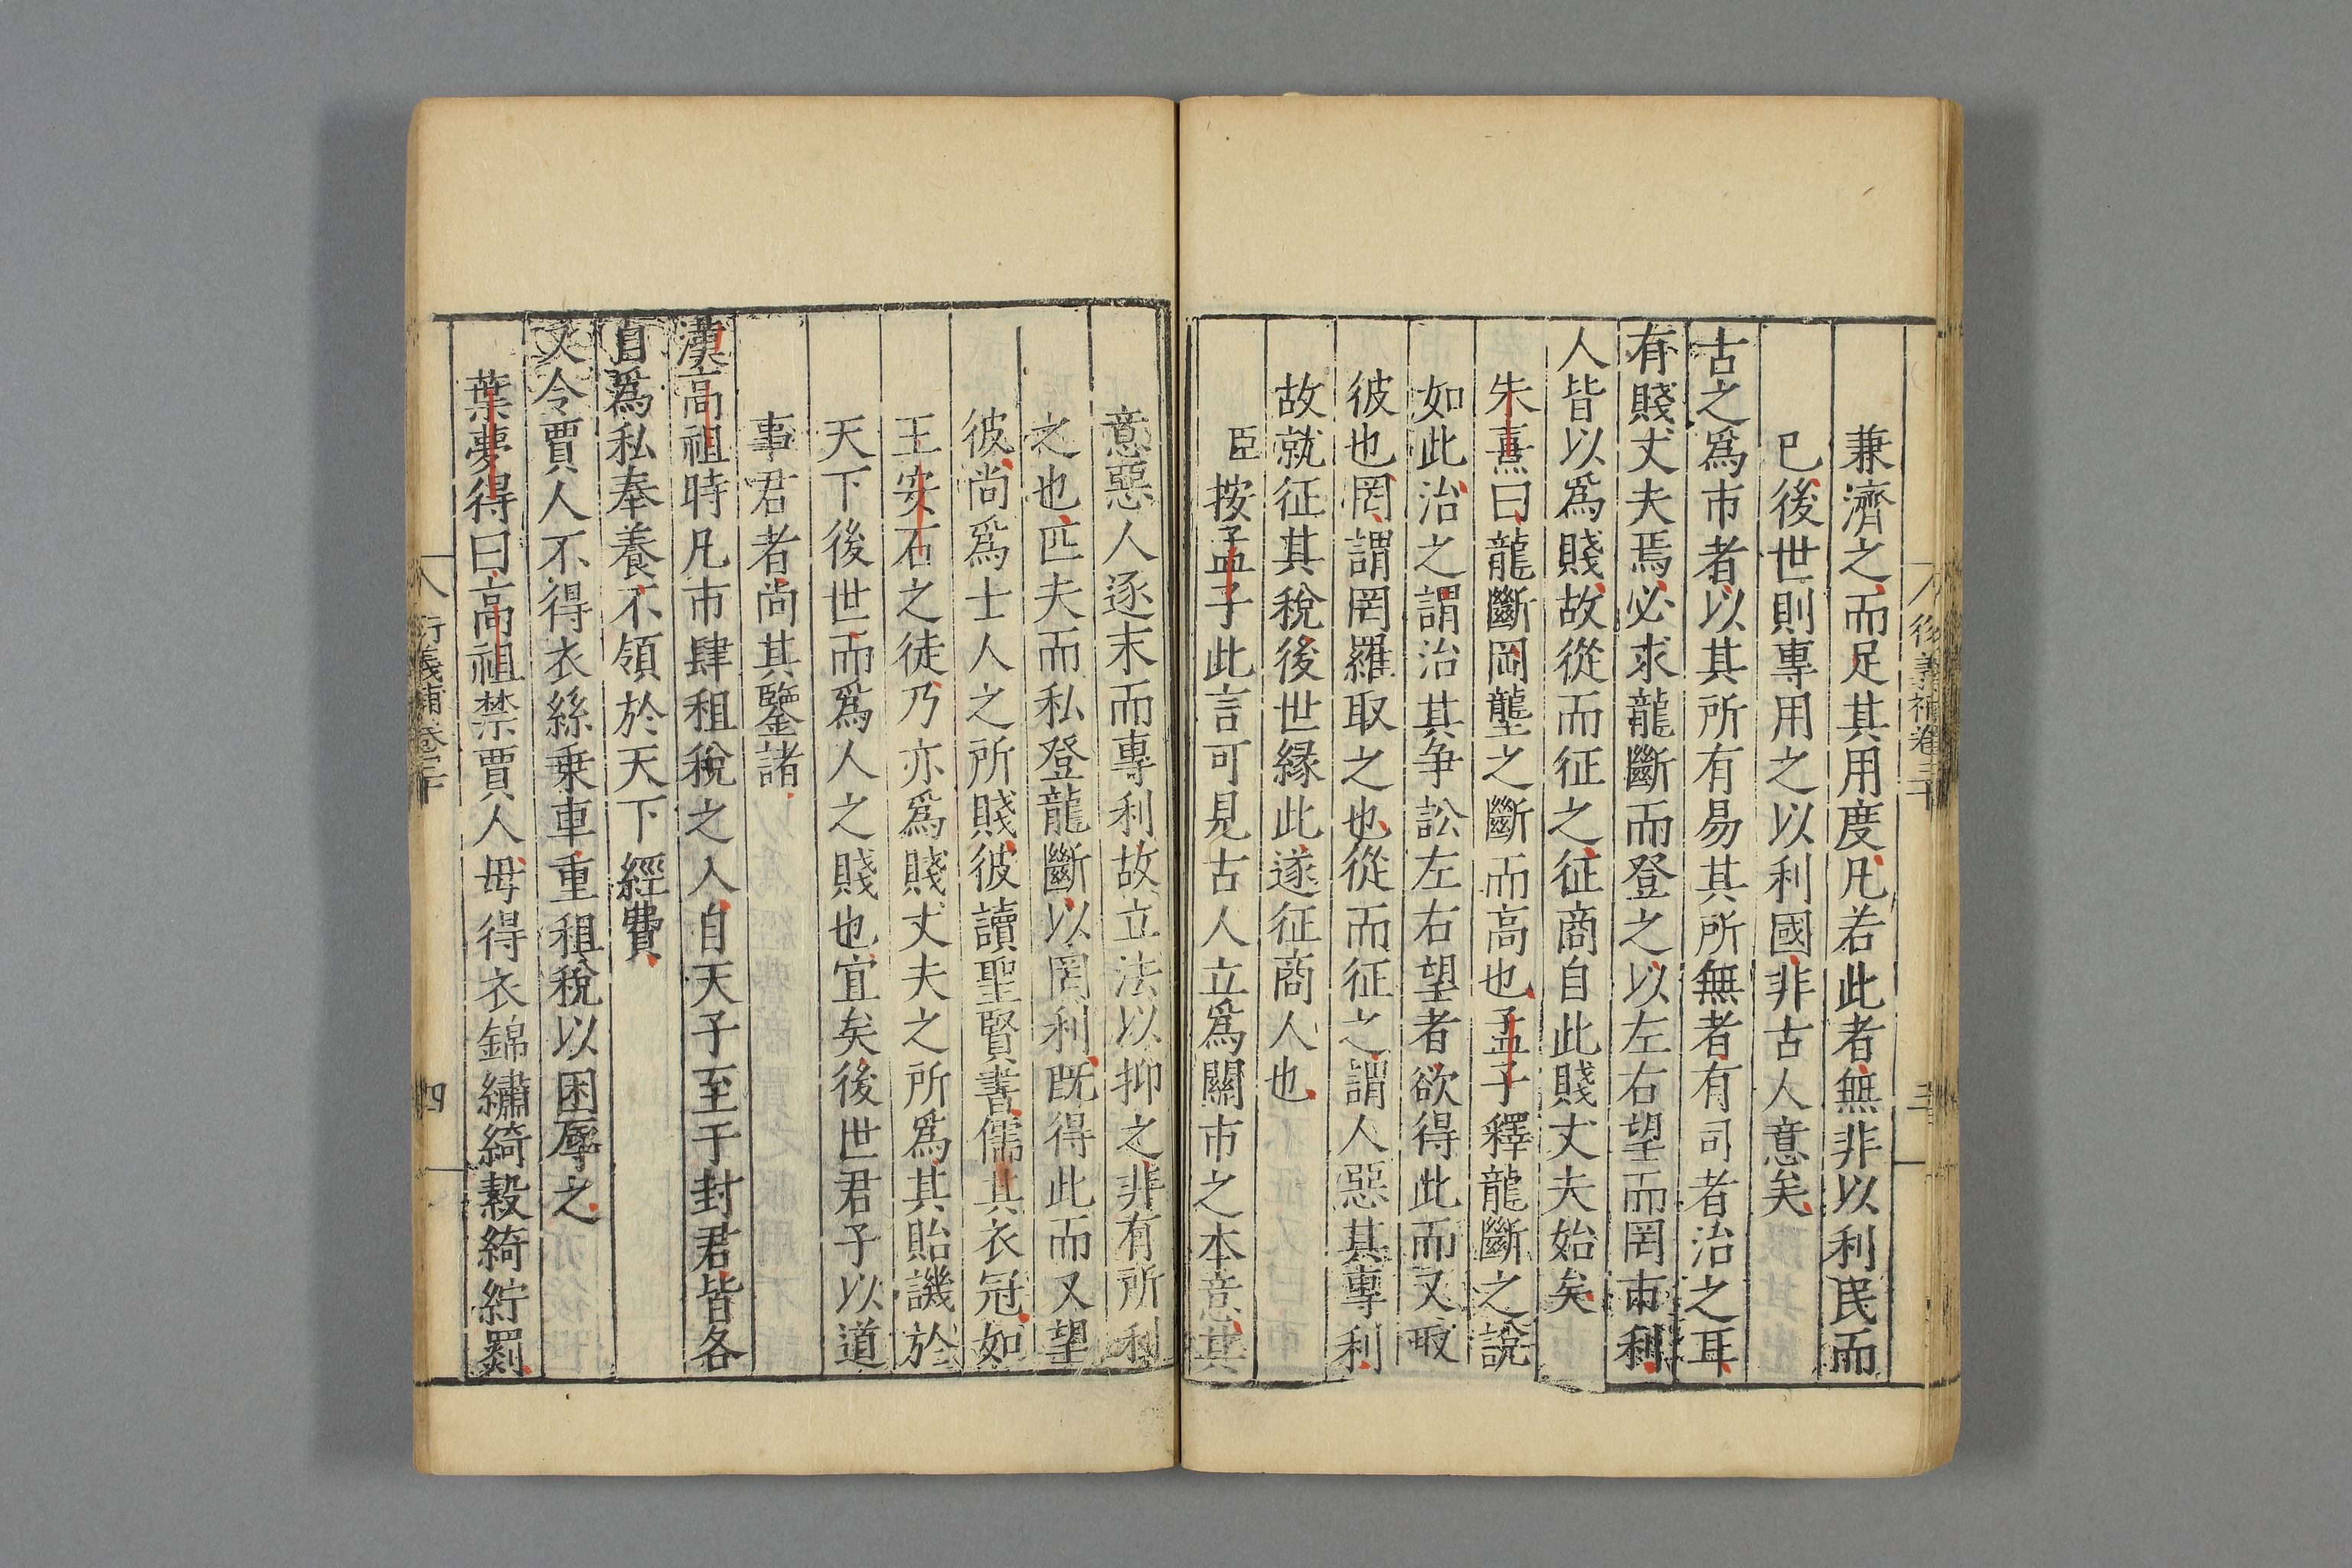 兼濟之而足其用度凡若此者無非以利民而
已後世則專用之以利國非古人意矣
古之爲市者以其所有易其所無者有司者治之耳
有賤丈夫焉必求龍斷而登之以左右望而罔市利
人皆以爲賤故從而征之征商自此賤丈夫始矣
朱熹曰龍斷岡壟之斷而高也孟子釋龍斷之說
如此治之謂治其爭訟左右望者欲得此而又取
彼也罔謂罔羅取之也從而征之謂人惡其專利
故就征其稅後世緣此遂征商人也
臣按孟子此言可見古人立爲關市之本意其
意惡人逐末而專利故立法以抑之非有所利
之也匹夫而私登龍斷以罔利既得此而又望
彼尚爲士人之所賤彼讀聖賢書儒其衣冠如
王安石之徒乃亦爲賤丈夫之所爲其貽譏於
天下後世而爲人之賤也宜矣後世君子以道
事君者尚其鑒諸
漢高祖時凡市肆租稅之入自天子至于封君皆各
自爲私奉養不領於天下經費
又令賈人不得衣絲乗車重租稅以困辱之
葉夢得曰高祖禁賈人毋得衣錦繡綺縠絺紵罽
衍義補卷三十
四